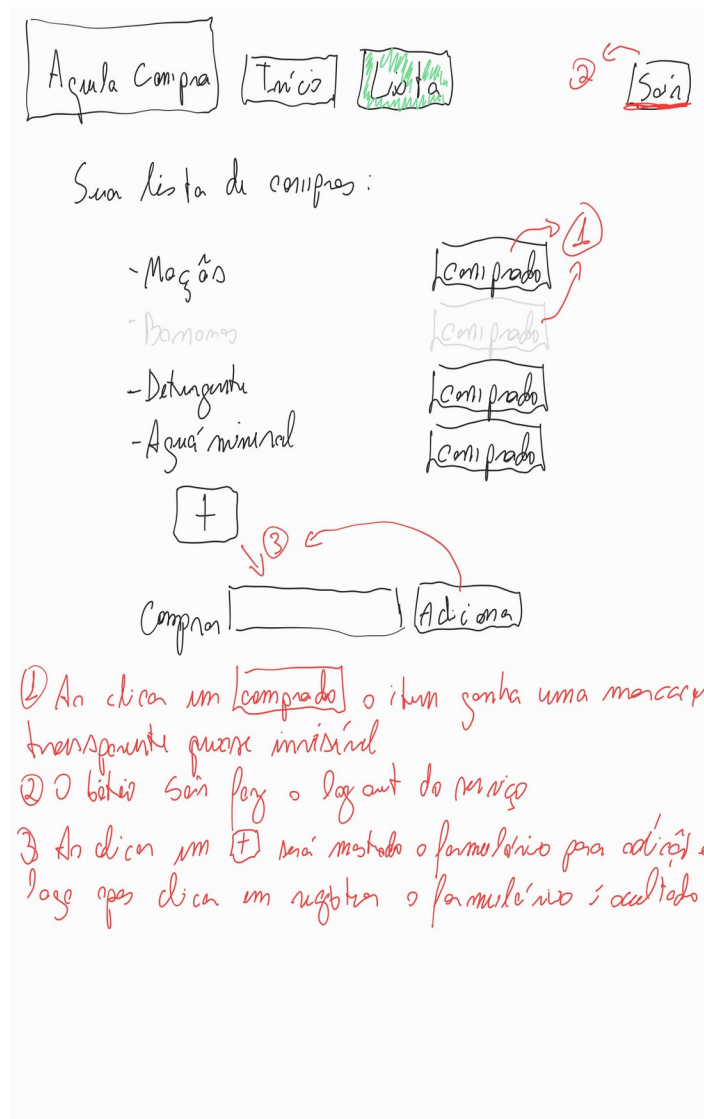 Aquela Compra Início Lista 2 Sair
Sua lista de compras:
- Maçãs comprado 1
- Bananas comprado
- Detergente comprado
- Água mineral comprado
+
3
Comprar Adicionar
1 Ao clicar em comprado o item ganha uma marcaç
transparente quase invisível
2 O botão Sair faz o logout do serviço
3 Ao clicar em + será mostrado o formulário para adição e
logo apos clicar em registrar o formulário é ocultado